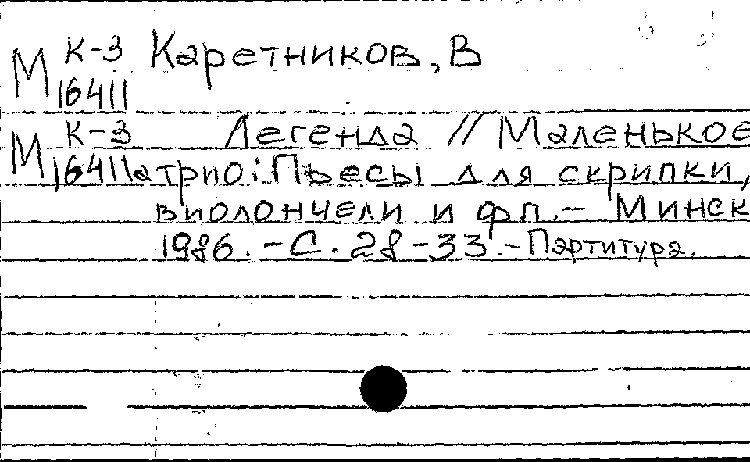 М К-3 Каретников, В
16411
М К-3 Легенда // Маленькое
16411а трио: Пьесы для скрипки,
виолончели и фп. - Минск
1986. - С. 28-33. - Партитура.